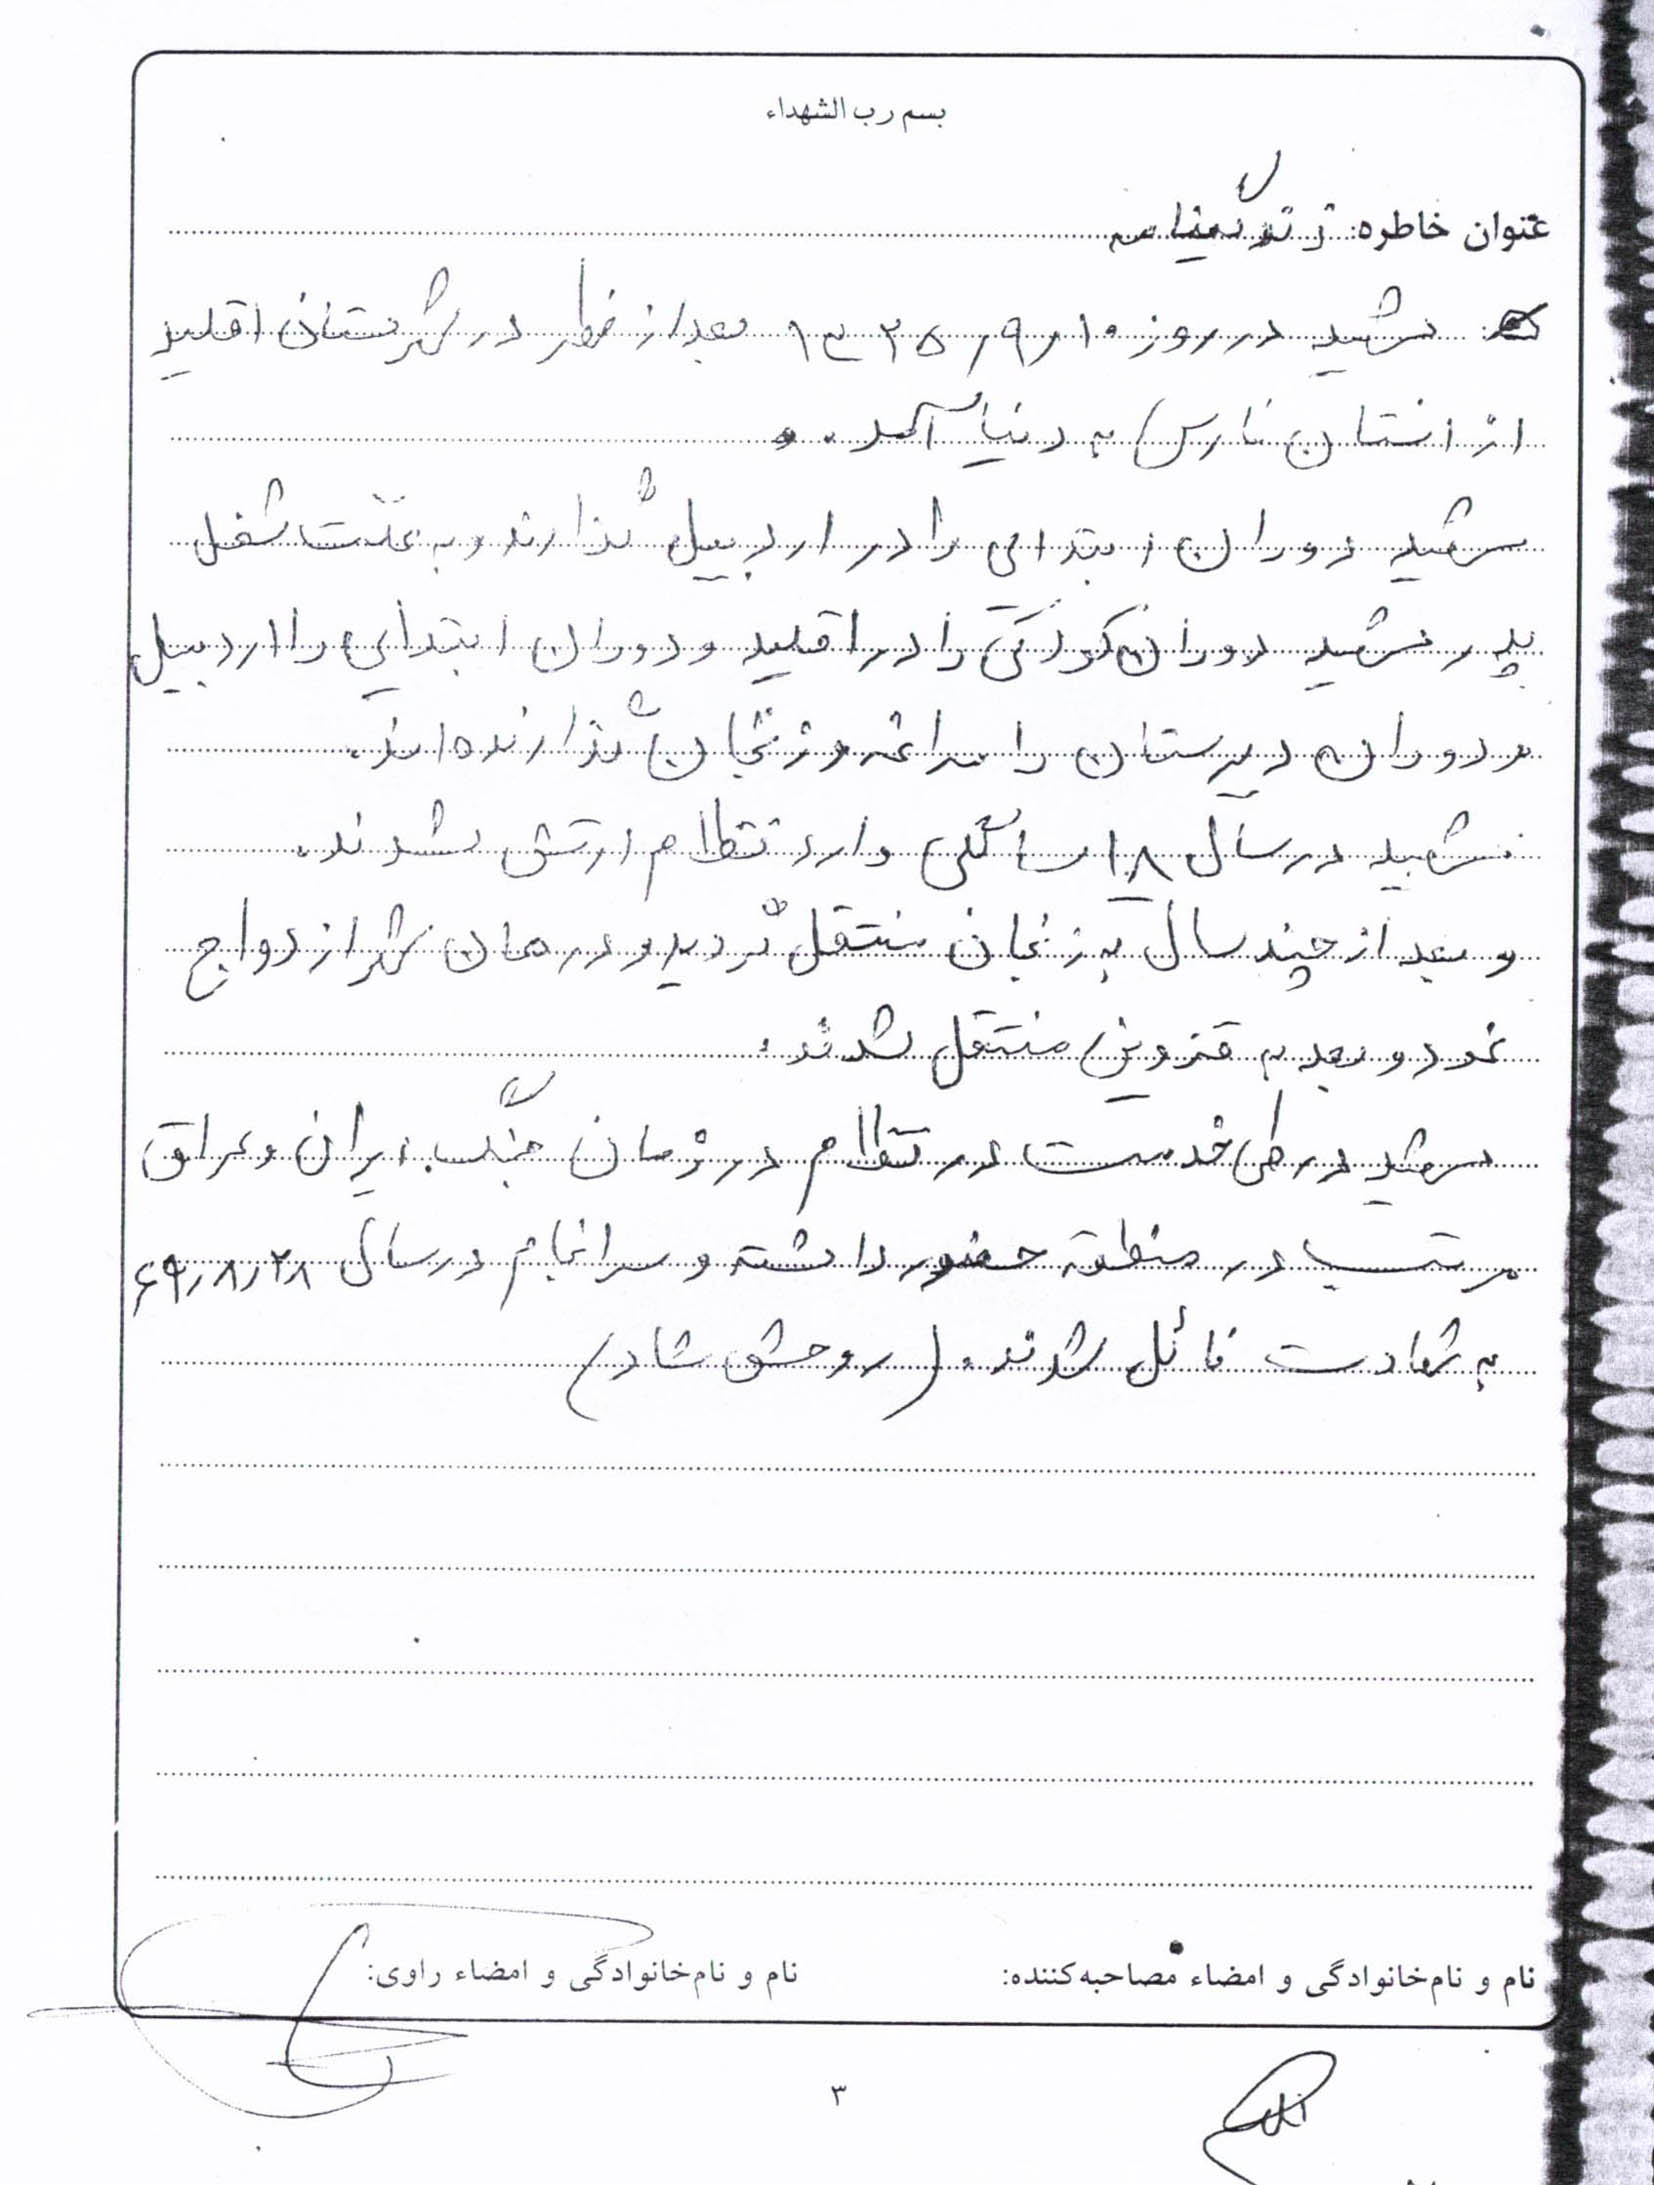 بسم رب الشهداء
عنوان خاطره: زندگینامه
شهید در روز ۲۵/۹/۱۰ ۱۲ بعد از ظهر در شهرستان اقلید
از استان فارس به دنیا آمد.
شهید دوران ابتدایی را در اردبیل گذارند و به علّت شغل
پدر شهید دوران کودکی را در اقلید و دوران ابتدایی را اردبیل
و دوران دبیرستان را مراغه و زنجان گذارنده اند.
شهید در سال ۱۸ سالگی وارد نظام ارتش شدند.
و بعد از چند سال به زنجان منتقل گردید و در همان شهر ازدواج
نمود و بعد به قزوین منتقل شدند.
شهید در طی خدمت در نظام در زمان جنگ ایران و عراق
مرتب در منطقه حضور داشته و سرانجام در سال ۶۹/۸/۲۸
به شهادت نائل شدند. (روحش شاد)
نام و نام‌خانوادگی و امضاء مصاحبه‌کننده:
نام و نام‌خانوادگی و امضاء راوی:
۳